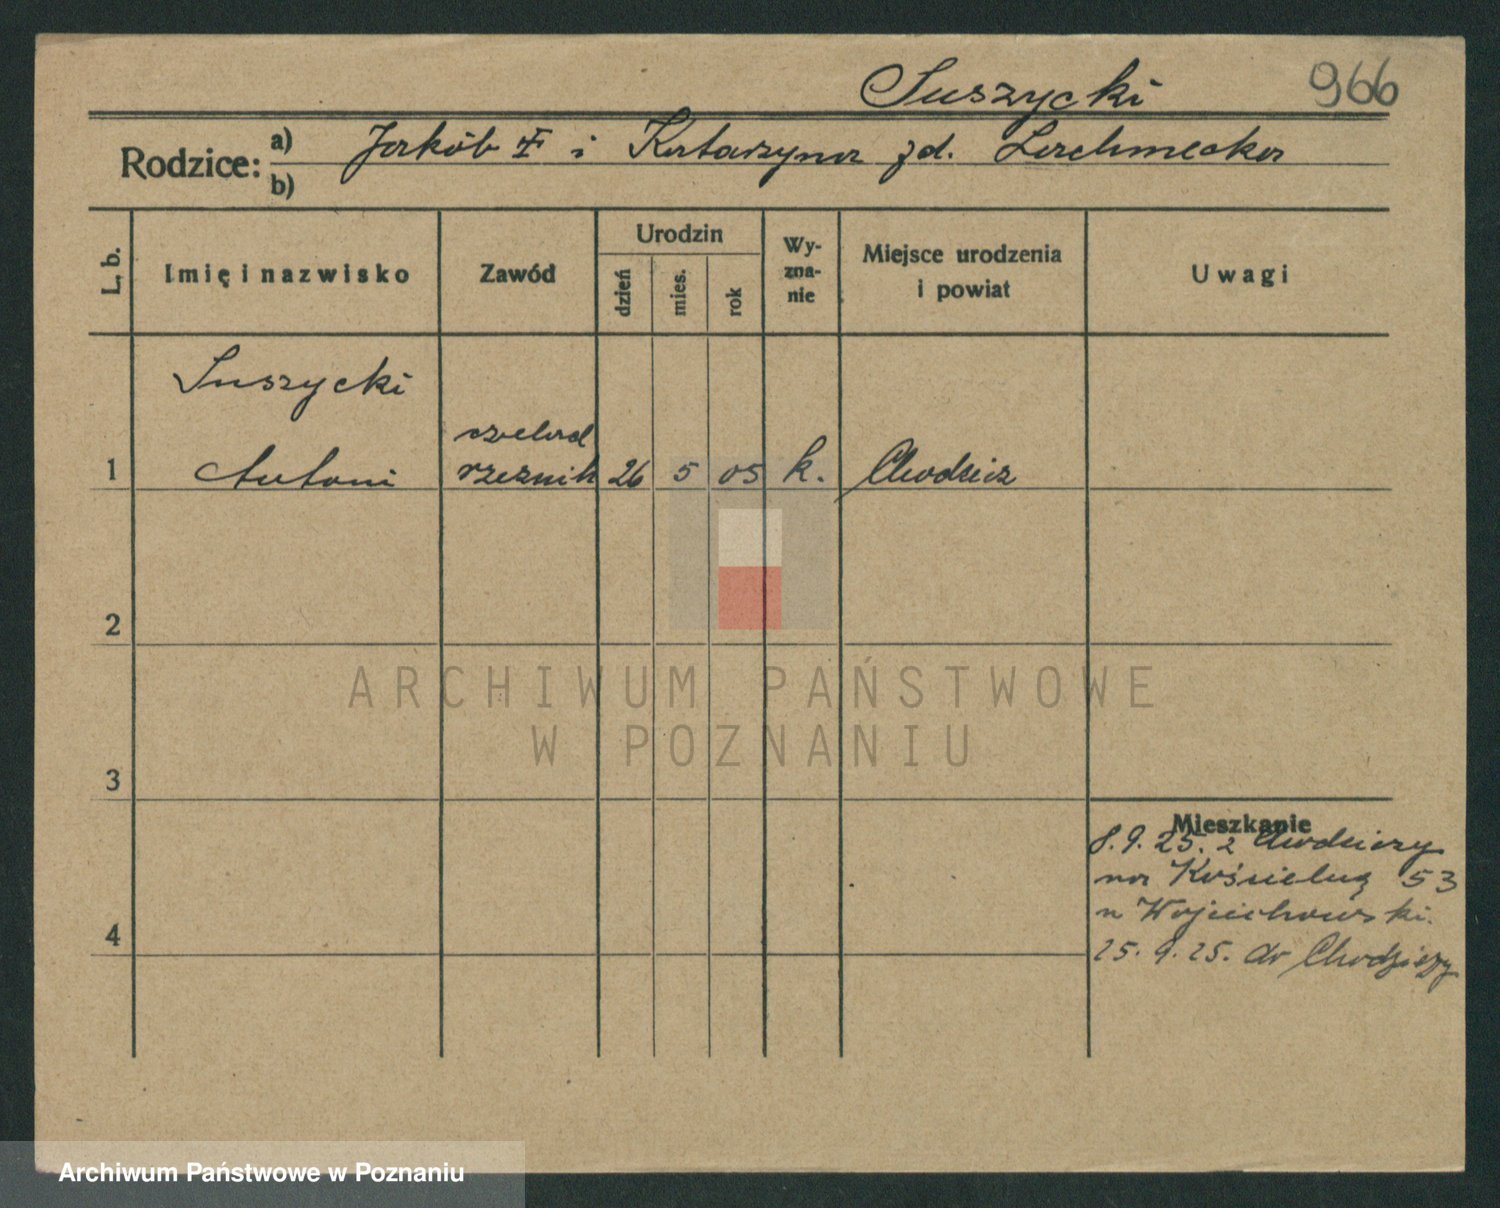 Suszycki 966
Rodzice: a) Jakób ‡ i Katarzyna zd. Lachmecka
b)
L. b.
Imię i nazwisko
Zawód
Urodzin
dzień
mies.
rok
Wy-
zna-
nie
Miejsce urodzenia
i powiat
Uwagi
Suszycki
czelad
1 Antoni rzeznik 26 5 05 k. Chodzież
2
ARCHIWUM PAŃSTWOWE
W POZNANIU
3
Mieszkanie
8.9.25. z Chodzieży
na Kościelną 53
u Wojciechowski.
4
25.9.25. do Chodzieży
Archiwum Państwowe w Poznaniu